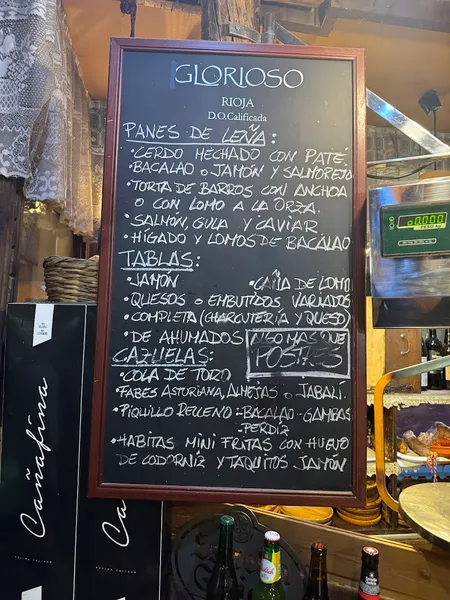 GLORIOSO
RIOJA
D.O.Calificada
PANES DE LEÑA:
·CERDO MECHADO CON PATÉ.
·BACALAO o JAMÓN Y SALMOREJO
·TORTA DE BARROS CON ANCHOA
o CON LOMO A LA ORZA.
·SALMÓN, GULA Y CAVIAR
·HÍGADO Y LOMOS DE BACALAO
TABLAS:
·JAMÓN ·CAÑA DE LOMO
·QUESOS o EMBUTIDOS VARIADOS
·COMPLETA (CHARCUTERÍA Y QUESO)
·DE AHUMADOS
ALGO MAS QUE
POSTRES
CAZUELAS:
·COLA DE TORO
·FABES ASTURIANA, ALMEJAS o JABALÍ.
·PIQUILLO RELLENO:-BACALAO-GAMBAS
-PERDIZ
·HABITAS MINI FRITAS CON HUEVO
DE CODORNIZ Y TAQUITOS JAMÓN
Cañafina
Caña
0.000
PESO kg